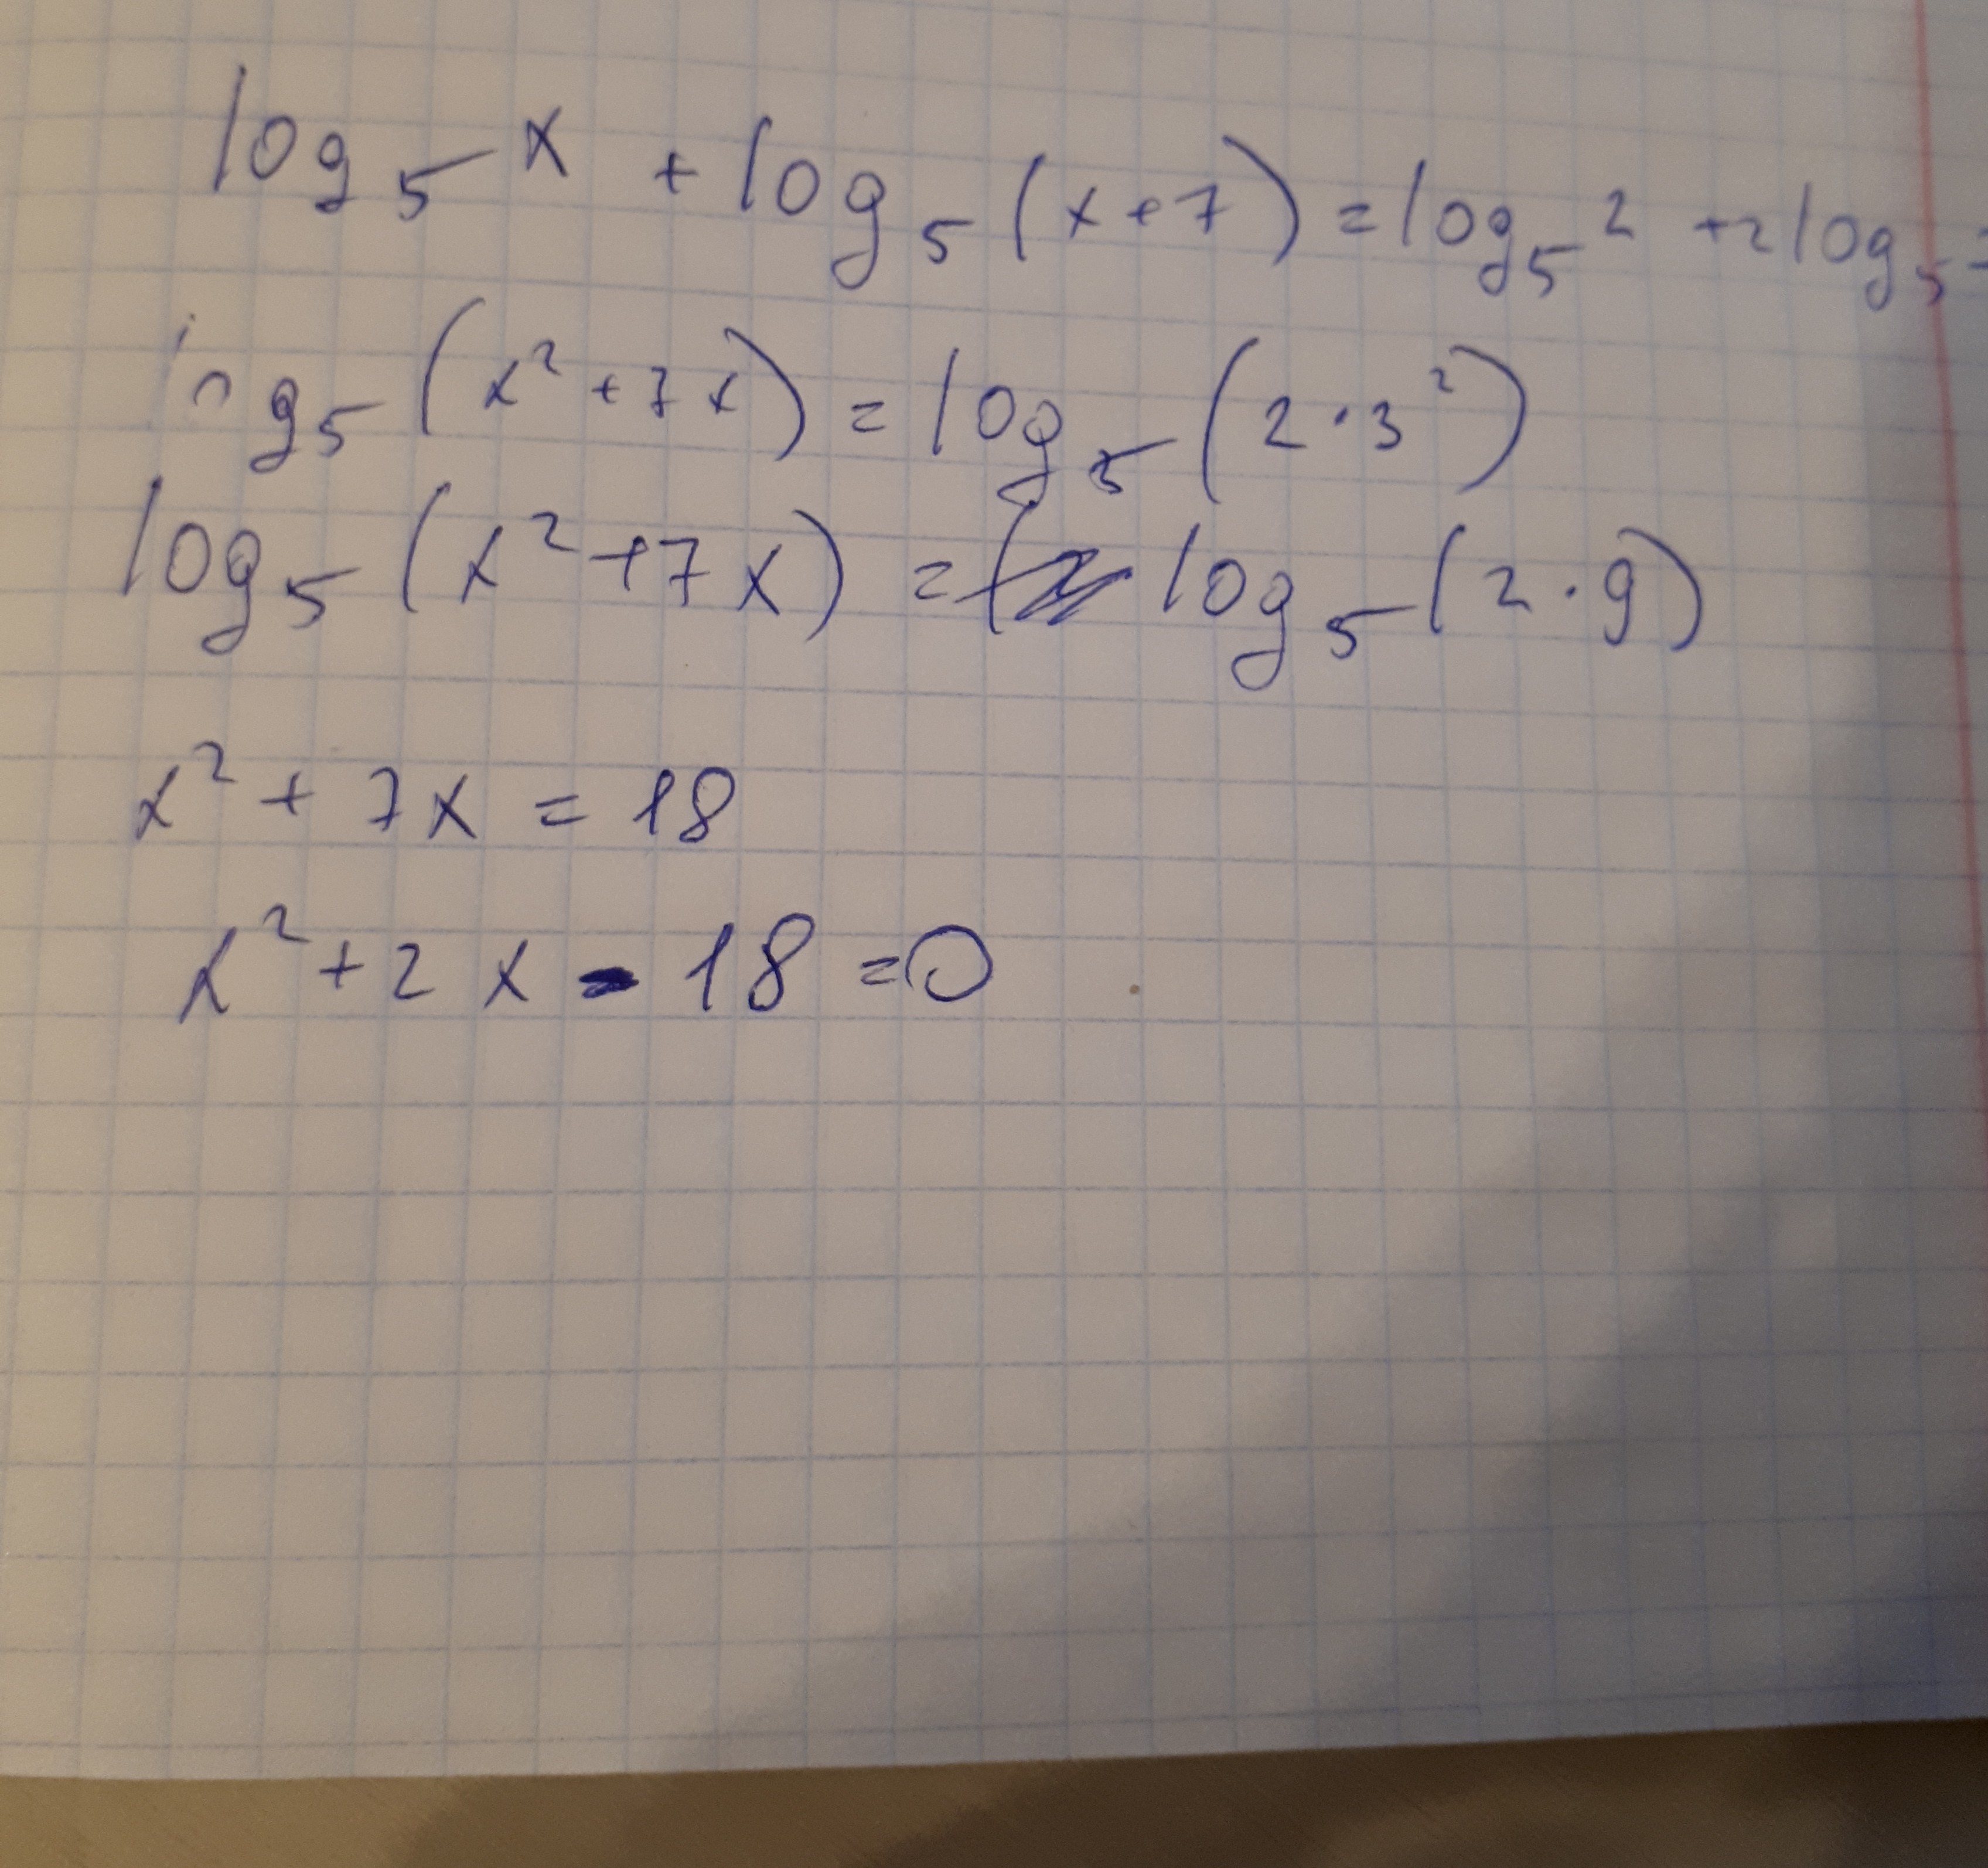 log₅ x + log₅(x+7) = log₅ 2 + 2 log₅
log₅(x²+7x) = log₅(2·3²)
log₅(x²+7x) = log₅(2·9)
x² + 7x = 18
x² + 2x - 18 = 0